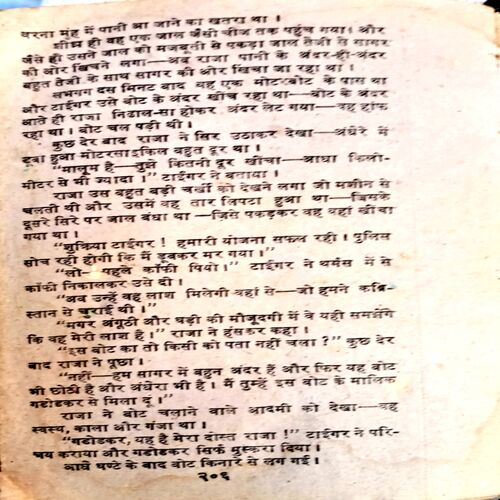 वरना मुंह में पानी आ जाने का खतरा था ।
शीघ्र ही वह एक जाल जैसी चीज तक पहुंच गया। और
जैसे ही उसने जाल को मजबूती से पकड़ा जाल तेजी से सागर
की ओर खिंचने लगा—अब राजा पानी के अंदर-ही-अंदर
बहुत तेजी के साथ सागर की ओर खिंचा जा रहा था ।
लगभग दस मिनट बाद वह एक मोटरबोट के पास था
और टाईगर उसे बोट के अंदर खींच रहा था—बोट के अंदर
आते ही राजा निढाल-सा होकर अंदर लेट गया—वह हांफ
रहा था । बोट चल पड़ी थी ।
कुछ देर बाद राजा ने सिर उठाकर देखा—अंधेरे में
डूबा हुआ मोटरसाइकिल बहुत दूर था ।
"मालूम है—तुझे कितनी दूर खींचा—आधा किलो-
मीटर से भी ज्यादा ।" टाईगर ने बताया ।
राजा उस बहुत बड़ी चर्खी को देखने लगा जो मशीन से
चलती थी और उसमें वह तार लिपटा हुआ था—जिसके
दूसरे सिरे पर जाल बंधा था—जिसे पकड़कर वह यहां खींचा
गया था ।
"शुक्रिया टाईगर ! हमारी योजना सफल रही । पुलिस
सोच रही होगी कि मैं डूबकर मर गया ।"
"लो- पहले कॉफी पियो ।" टाईगर ने थर्मस में से
कॉफी निकालकर उसे दी ।
"अब उन्हें वह लाश मिलेगी वहां से—जो हमने कब्रि-
स्तान से चुराई थी ।"
"मगर अंगूठी और घड़ी की मौजूदगी में वे यही समझेंगे
कि वह मेरी लाश है ।" राजा ने हंसकर कहा ।
"इस बोट का तो किसी को पता नहीं चला ?" कुछ देर
बाद राजा ने पूछा ।
"नहीं—हम सागर में बहुत अंदर हैं और फिर यह बोट
भी छोटी है और अंधेरा भी है । मैं तुम्हें इस बोट के मालिक
गडोडकर से मिला दूं ।"
राजा ने बोट चलाने वाले आदमी को देखा—वह
स्वस्थ, काला और गंजा था ।
"गडोडकर, यह है मेरा दोस्त राजा !" टाईगर ने परि-
चय कराया और गडोडकर सिर्फ मुस्करा दिया ।
आधे घण्टे के बाद बोट किनारे से लग गई ।
२०६